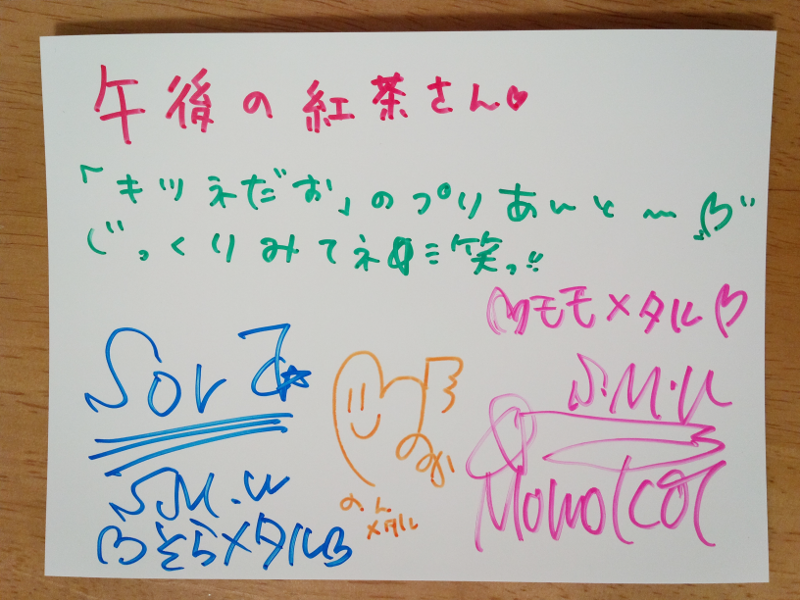 午後の紅茶さん♥
「キツネだお」のぷりあーと〜
じっくりみてネ 笑っ!!
モモメタル
S.M.U
MomoKa
Sora☆
S.M.U
そらメタル
のん
メタル